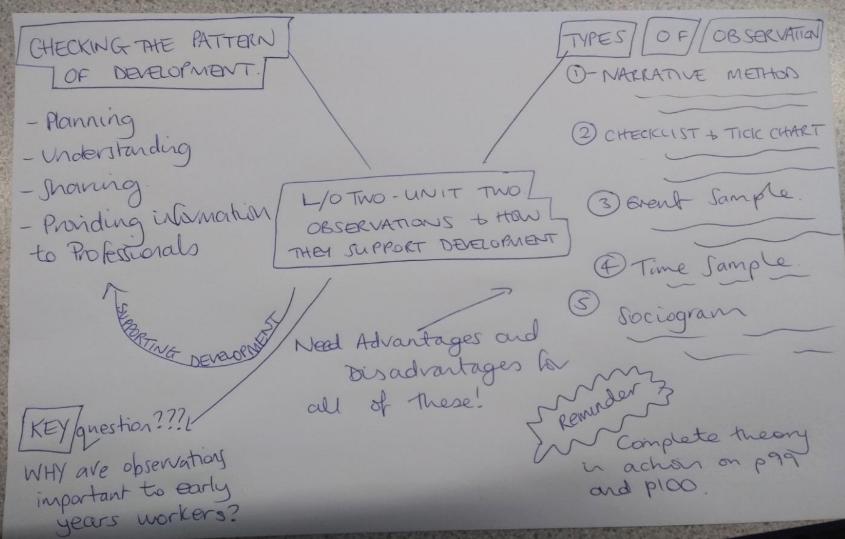 CHECKING THE PATTERN
OF DEVELOPMENT.
- Planning
- Understanding
- Sharing
- Providing information
to Professionals
TYPES OF OBSERVATION
① - NARRATIVE METHOD
② CHECKLIST & TICK CHART
③ Event Sample.
④ Time Sample
⑤ Sociogram
L/O TWO - UNIT TWO
OBSERVATIONS & HOW
THEY SUPPORT DEVELOPMENT
SUPPORTING DEVELOPMENT
Need Advantages and
Disadvantages for
all of these!
KEY question???
WHY are observations
important to early
years workers?
Reminder
Complete theory
in action on p99
and p100.